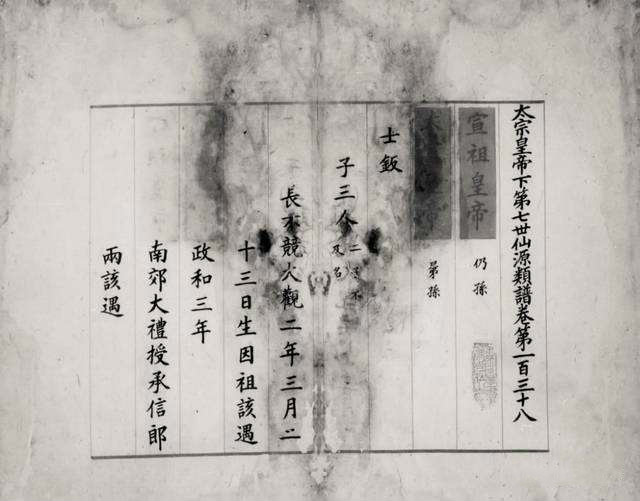 太宗皇帝下第七世仙源類譜卷第一百三十八
宣祖皇帝 仍孫
晜孫
士鈑
子三人 二子不及名
長不競大觀二年三月二
十三日生因祖該遇
政和三年
南郊大禮授承信郎
兩該遇